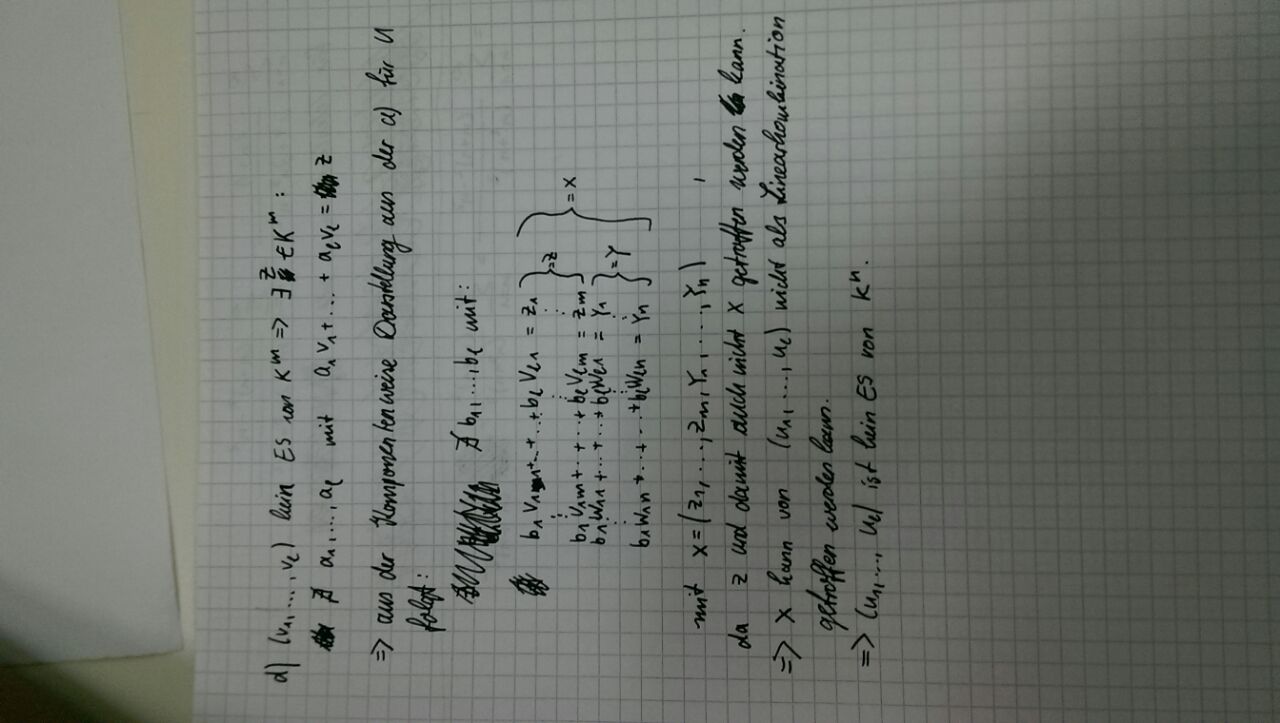 d) (v₁,...,vₗ) kein ES von Kᵐ => ∃ z ∈ Kᵐ :
∄ a₁,...,aₗ mit a₁v₁+...+aₗvₗ = z
=> aus der Komponentenweise Darstellung aus der a) für u
folgt:
∄ b₁,...,bₗ mit:
b₁v₁₁+...+bₗvₗ₁ = z₁
⋮
b₁v₁ₘ+...+bₗvₗₘ = zₘ } = z
b₁w₁₁+...+bₗwₗ₁ = Y₁
⋮
b₁w₁ₙ+...+bₗwₗₙ = Yₙ } = Y } = X
mit X = (z₁,...,zₘ,Y₁,...,Yₙ) ,
da z und damit auch nicht X getroffen werden kann.
=> X kann von (u₁,...,uₗ) nicht als Linearkombination
getroffen werden kann.
=> (u₁,..., uₗ) ist kein ES von Kⁿ.